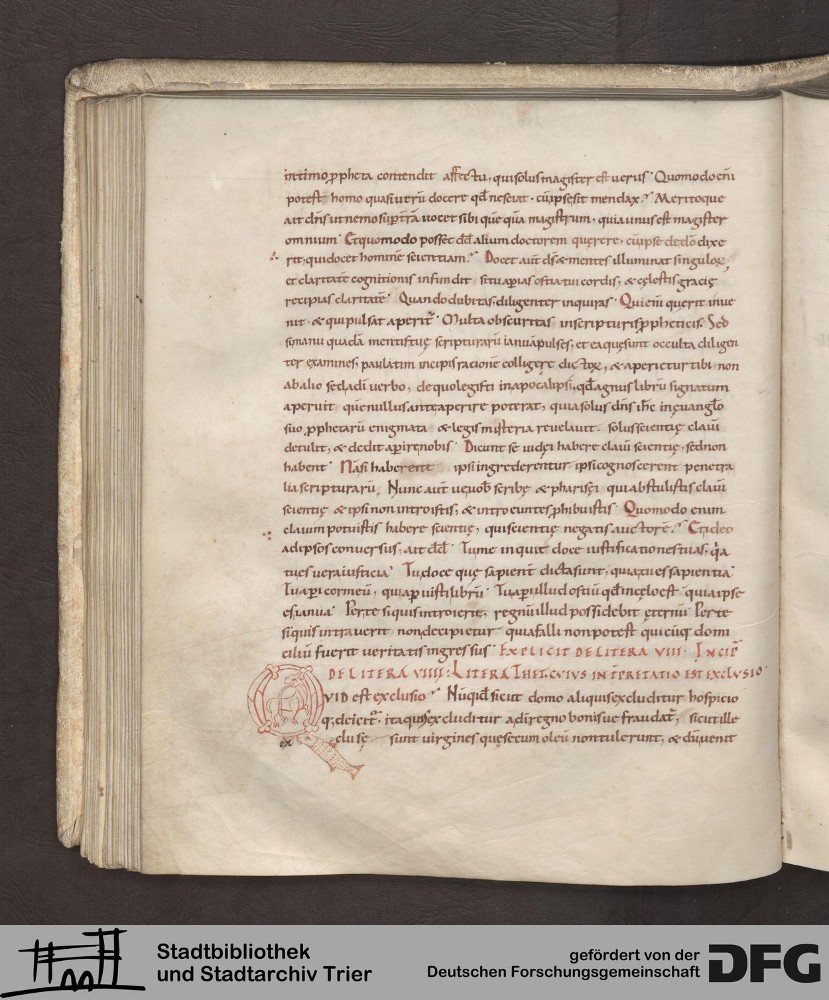 intimo ꝓpheta contendit affectu, qui solus magister est uerus. Quomodo eni
potest homo quasi uerū docere qđ nesciat. cū ipse sit mendax? Merito que
ait dn̄s ut nemo sup terrā uocet sibi quē quā magistrum. quia unus est magister
omnium. Et quomodo posset dd̄ alium doctorem querere, cū ipse de dō dixe
rit, qui docet hominē scientiam? Docet aut̄ ds̄ & mentes illuminat singuloꝝ,
et claritatē cognitionis infundit si tu aꝑias ostia tui cordis, & cęlestis gracię
recipias claritatē. Quando dubitas, diligenter inquiras. Qui enī querit inue
nit. & qui pulsat aperit̄. Multa obscuritas in scripturis ꝓpheticis. Sed
si manu quadā mentis tuę scripturarū ianuā pulses, et ea quę sunt occulta diligen
ter examines, paulatim incipis racionē colligere dictoꝝ, & aperietur tibi non
ab alio sed a dī uerbo, de quo legisti in apocalipsi, qđ agnus librū signatum
aperuit quē nullus ante aperire poterat, quia solus dn̄s ih̄c in euanglo
suo ꝓphetarū enigmata & legis misteria reuelauit. solus scientię clauī
detulit, & dedit aꝑire nobis. Dicunt se iudei habere clauī scientię, sed non
habent. Nā si haberent ipsi ingrederentur ipsi cognoscerent penetra
lia scripturarū. Nunc aut̄ uę uob̄ scribę & pharisei qui abstulistis clauī
scientię & ipsi non introistis, & introeuntes ꝓhibuistis. Quomodo enim
clauim potuistis habere scientię, qui scientię negatis auctorē? Et ideo
ad ipsos conuersus, ait dd̄. Tu me inquit doce iustificationes tuas. qa
tu es uera iusticia. Tu doce quę sapient̄ dicta sunt, quia tu es sapientia
Tu aꝑi cor meū, quia aꝑuisti librū. Tu aꝑi illud ostiū qđ in cęlo est quia ipse
es ianua. Per te si quis introierit, regnū illud possidebit ęternū. Per te
si quis intrauerit non decipietur quia falli non potest qui cūq; domi
ciliū fuerit ueritatis ingressus. EXPLICIT DE LITERA VIII. INCIP̄
DE LITERA VIIII. LITERA THET. CVIVS INTP̄RETATIO EST EXCLVSIO
QVID est exclusio? Nūquid sicut domo aliquis excluditur hospicio
q; deicit̄. ita quis excluditur a dī regno bonisue fraudat̄, sicut ille
exclusę sunt uirgines quę secum oleū non tulerunt, & dū uenit
Stadtbibliothek
und Stadtarchiv Trier
gefördert von der
Deutschen Forschungsgemeinschaft
DFG